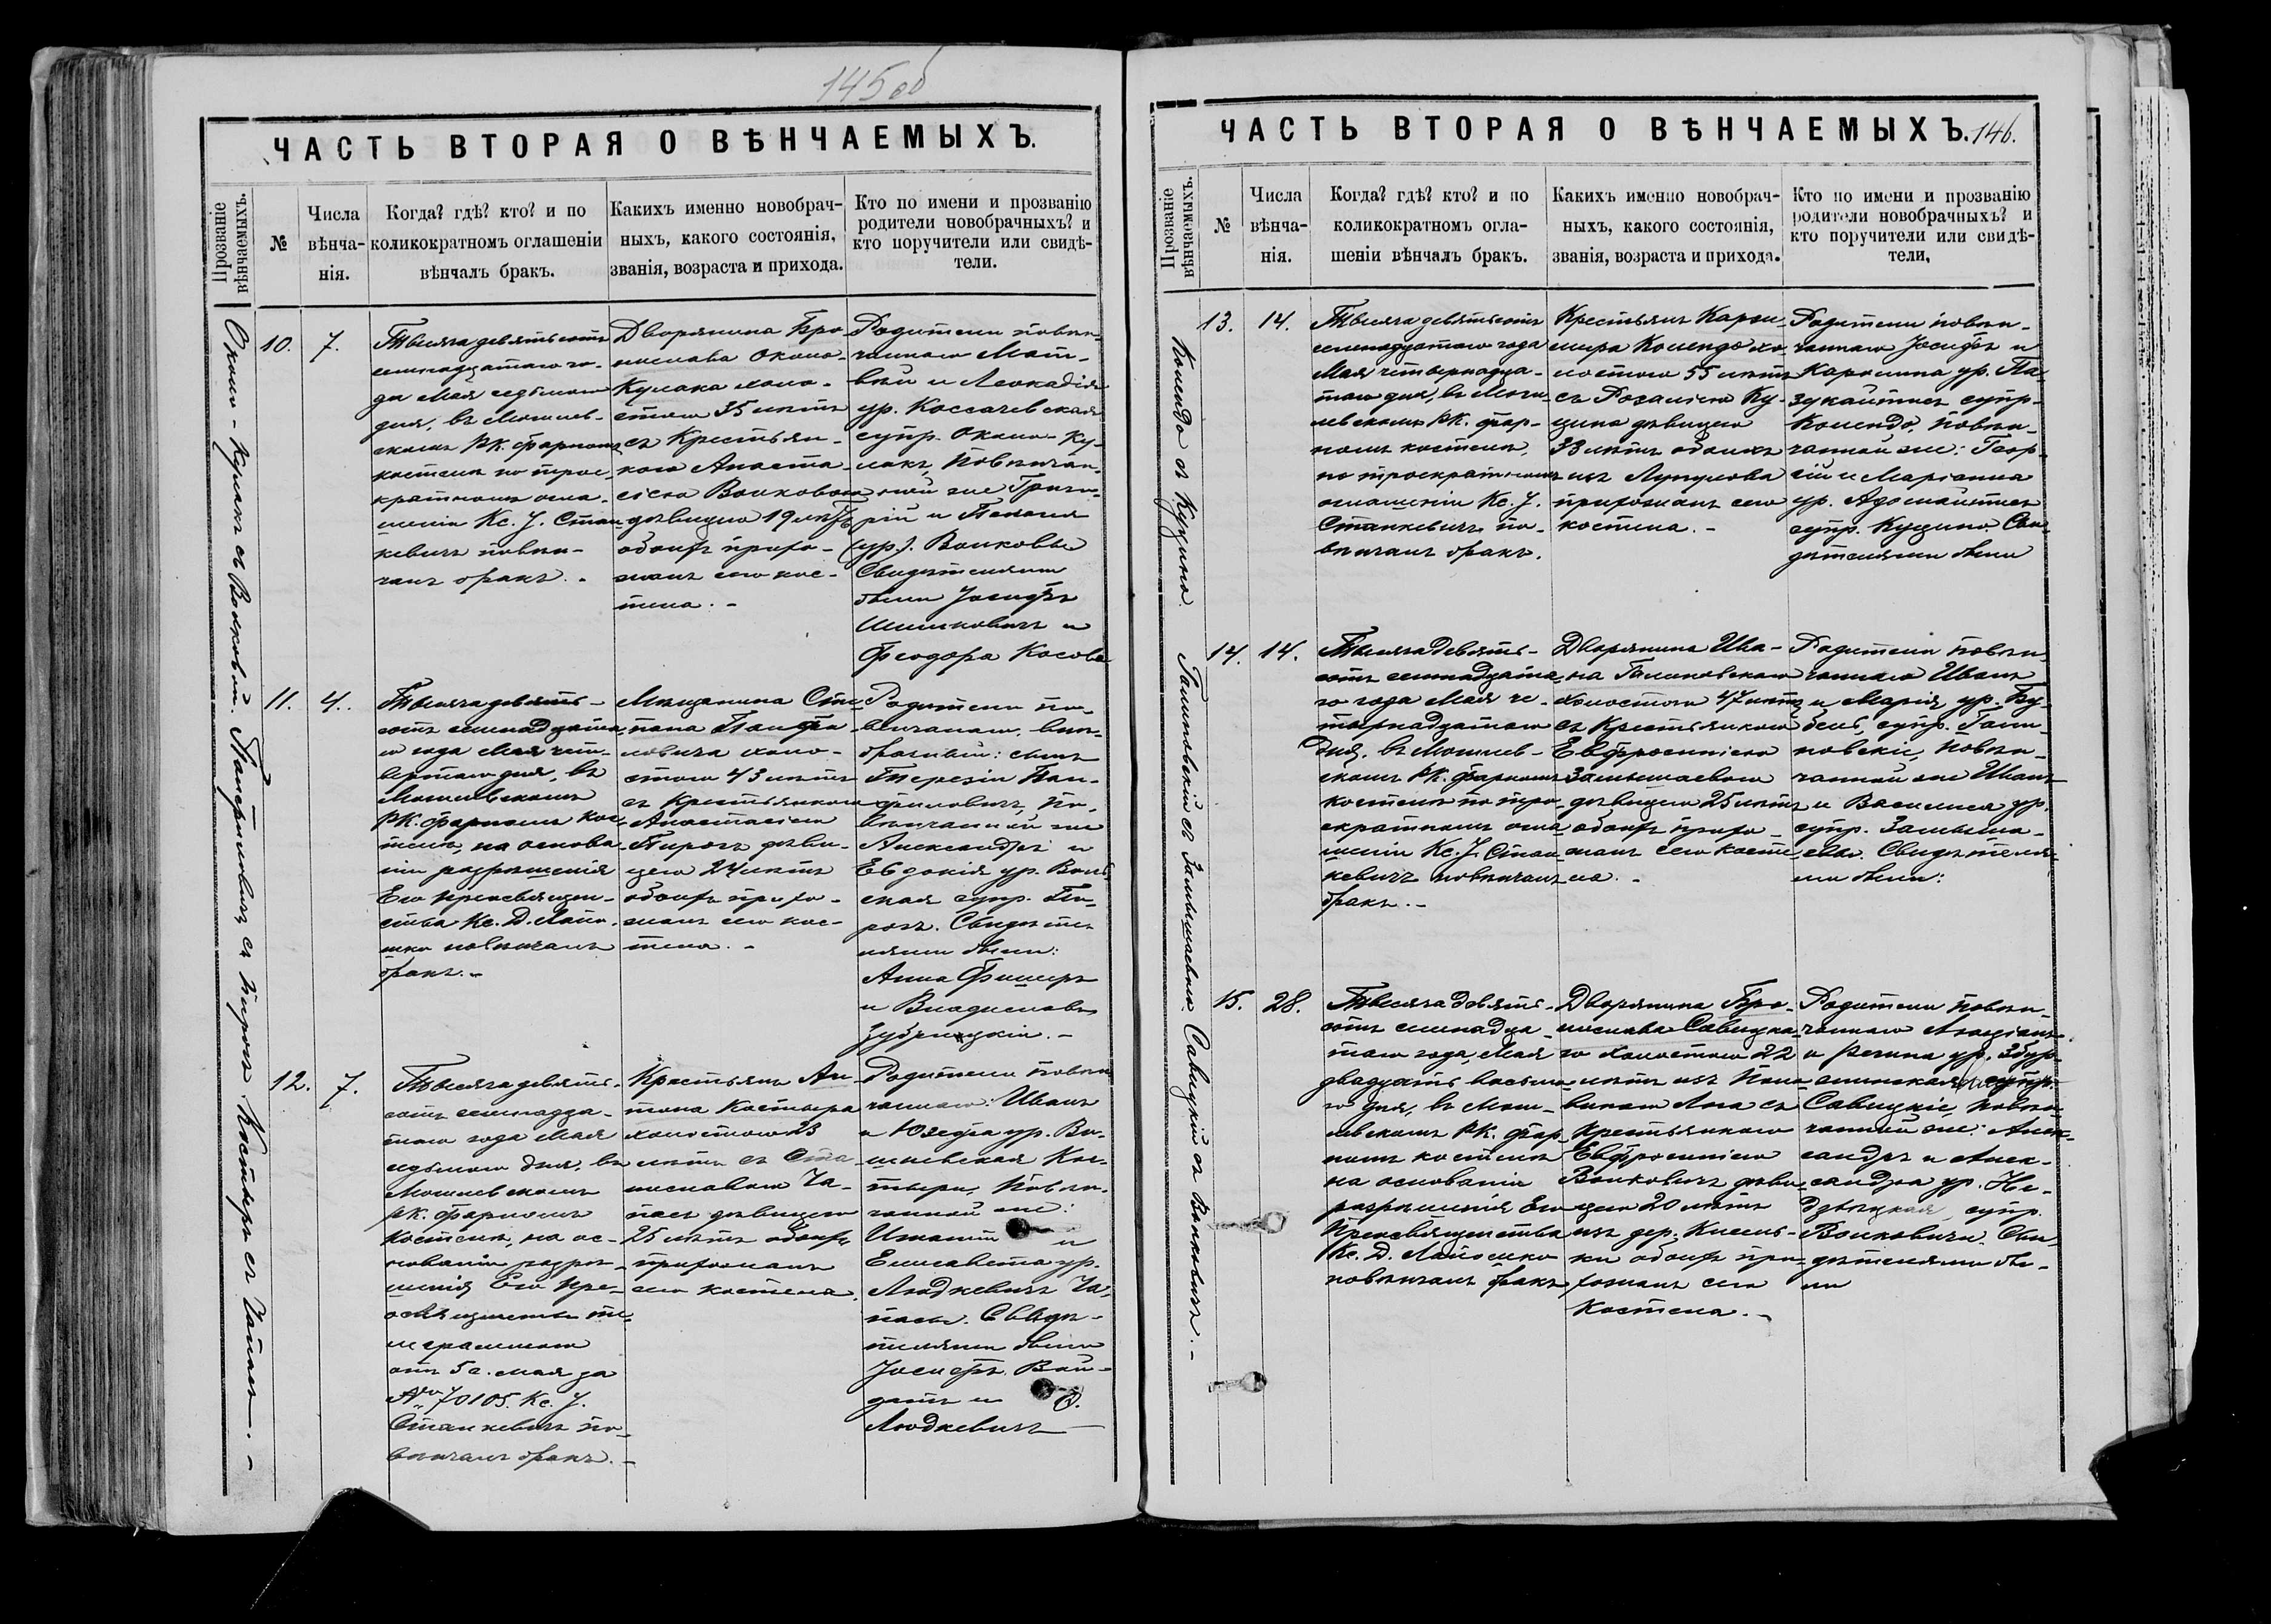 145 об
ЧАСТЬ ВТОРАЯ О ВѢНЧАЕМЫХЪ.
Прозваніе
вѣнчаемыхъ.
№
Числа
вѣнча-
нія.
Когда? гдѣ? кто? и по
коликократномъ оглашеніи
вѣнчалъ бракъ.
Какихъ именно новобрач-
ныхъ, какого состоянія,
званія, возраста и прихода.
Кто по имени и прозванію
родители новобрачныхъ? и
кто поручители или свидѣ-
тели.
Около-Кулакъ съ Волковой.
10.
7.
Тысяча девятьсотъ
семнадцатаго го-
да Мая седьмого
дня, въ Могилев-
скомъ РК. фарномъ
костелѣ по трое-
кратномъ огла-
шеніи Кс. J. Стан-
кевичъ повѣн-
чалъ бракъ. -
Дворянина Бро-
нислава Около-
Кулака холо-
стого 35 лѣтъ
съ Крестьян-
кою Анаста-
сіею Волковою
дѣвицею 19 лѣтъ
обоихъ прихо-
жанъ сего кос-
тела. -
Родители повѣн-
чаннаго Мат-
вѣй и Леокадія
ур. Коссачевская
супр. Около-Ку-
лакъ, повѣнчан-
ной же Григо-
рій и Пелагея
(ур). Волковы
Свидѣтелями
были Jосифъ
Шишковичъ и
Феодора Косова
Панфиловичъ съ Пирогъ
11.
4.
Тысяча девять-
сотъ семнадцата-
го года Мая чет-
вертаго дня, въ
Могилевскомъ
РК. фарномъ кос-
телѣ, на основа-
ніи разрѣшенія
Его Преосвящен-
ства Кс. Д. Лапо-
шко повѣнчалъ
бракъ. -
Мѣщанина Сте-
пана Панфи-
ловича холо-
стого 43 лѣтъ
съ Крестьянкою
Анастасіею
Пирогъ дѣви-
цею 24 лѣтъ
обоихъ прихо-
жанъ сего кос-
тела. -
Родители по-
вѣнчаннаго, внѣ-
брачный: сынъ
Терезіи Пан-
филовичъ, по-
вѣнчанной же
Александръ и
Евдокія ур.
ская супр. Пи-
рогъ. Свидѣте-
лями были:
Анна Фишеръ
и Владиславъ
Зубрицкій. -
Костыра съ Чапасъ. -
12.
7.
Тысяча девять-
сотъ семнадца-
таго года Мая
седьмого дня, въ
Могилевскомъ
РК. фарномъ
костелѣ, на ос-
нованіи разрѣ-
шенія Его Пре-
освященства те-
леграммою
отъ 5 с. мая за
№ 70105. Кс. J.
Станкевичъ по-
вѣнчалъ бракъ. -
Крестьянъ Ан-
тона Костыра
холостого 23
лѣтъ съ Ста-
ниславою Ча-
пасъ дѣвицею
25 лѣтъ обоихъ
прихожанъ
сего костела.
Родители повѣн-
чаннаго: Иванъ
и Юзефа ур. Ви-
шневская Кос-
тыры, повѣн-
чанной же:
Игнатій и
Елисавета ур.
Людкевичъ Ча-
пасы. Свидѣ-
телями были
Jосифъ Вой-
датъ и
Людкевичъ
ЧАСТЬ ВТОРАЯ О ВѢНЧАЕМЫХЪ.
146.
Прозваніе
вѣнчаемыхъ.
№
Числа
вѣнча-
нія.
Когда? гдѣ? кто? и по
коликократномъ огла-
шеніи вѣнчалъ бракъ.
Какихъ именно новобрач-
ныхъ, какого состоянія,
званія, возраста и прихода.
Кто по имени и прозванію
родители новобрачныхъ? и
кто поручители или свидѣ-
тели.
Колендо съ Куцина.
13.
14.
Тысяча девятьсотъ
семнадцатаго года
Мая четырнадца-
таго дня, въ Моги-
левскомъ РК. фар-
номъ костелѣ,
по троекратномъ
оглашеніи Кс. J.
Станкевичъ по-
вѣнчалъ бракъ.
Крестьянъ Кази-
мира Колендо хо-
лостого 55 лѣтъ
съ Розаліею Ку-
цина дѣвицею
33 лѣтъ обоихъ
изъ Лупулова
прихожанъ сего
костела. -
Родители повѣн-
чаннаго Jосифъ и
Каролина ур.
супр.
Колендо, повѣн-
чанной же: Геор-
гій и Маріанна
ур. Адомайтисъ
супр. Куцина Сви-
дѣтелями были
Галиновскій съ Замышляевою.
14.
14.
Тысяча девять-
сотъ семнадцата-
го года Мая че-
тырнадцатаго
дня, въ Могилев-
скомъ РК. фарномъ
костелѣ по трое-
кратномъ огла-
шеніи Кс. J. Стан-
кевичъ повѣнчалъ
бракъ. -
Дворянина Ива-
на Галиновскаго
холостого 47 лѣтъ
съ Крестьянкой
Евфросиніею
Замышляевою
дѣвицею 25 лѣтъ
обоихъ прихо-
жанъ сего косте-
ла. -
Родители повѣн-
чаннаго Иванъ
и Марія ур.
супр. Гали-
новскіе, повѣн-
чанной же Иванъ
и Василиса ур.
супр. Замышля-
евы. Свидѣтеля-
ми были:
Савицкій съ Волковичъ. -
15.
28.
Тысяча девять-
сотъ семнадца-
таго года, Мая
двадцать восьмо-
го дня, въ Моги-
левскомъ РК. фар-
номъ костелѣ
на основаніи
разрѣшенія Его
Преосвященства
Кс. Д. Лапошко
повѣнчалъ бракъ
Дворянина Бро-
нислава Савицка-
го холостого 22
лѣтъ изъ
съ
Крестьянкою
Евфросиніею
Волковичъ дѣви-
цею 20 лѣтъ
изъ дер.
обоихъ при-
хожанъ сего
костела. -
Родители повѣн-
чаннаго
и Регина ур.
супр.
Савицкіе, повѣн-
чанной же: Алек-
сандръ и Алек-
сандра ур. Не-
дзвѣцкая, супр.
Волковичи. Сви-
дѣтелями бы-
ли